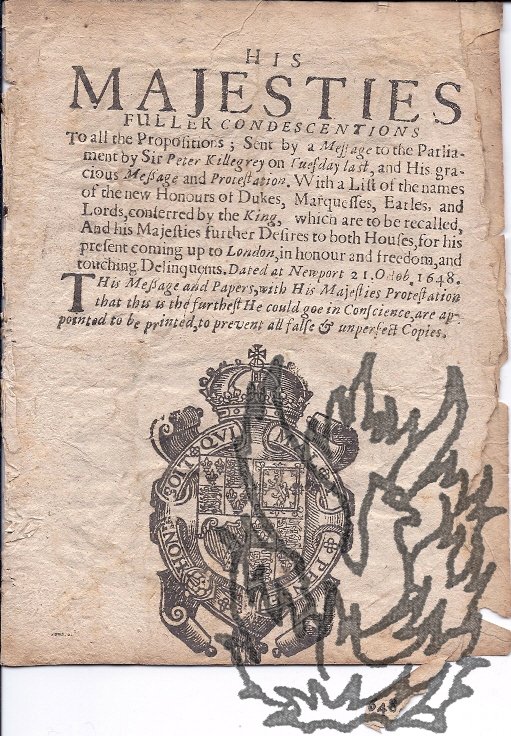 HIS
MAJESTIES
FULLER CONDESCENTIONS
To all the Propositions; Sent by a Meſſage to the Parlia-
ment by Sir Peter Killegrey on Tueſday laſt, and His gra-
cious Meſſage and Proteſtation. With a Liſt of the names
of the new Honours of Dukes, Marqueſſes, Earles, and
Lords, conferred by the King, which are to be recalled,
And his Majeſties further Deſires to both Houſes, for his
preſent coming up to London, in honour and freedom, and
touching Delinquents. Dated at Newport 21. Octob. 1648.
THis Meſſage and Papers, with His Majeſties Proteſtation
that this is the furtheſt He could goe in Conſcience, are ap-
pointed to be printed, to prevent all falſe & unperfect Copies.
HONI SOIT QVI MAL Y PEN
648